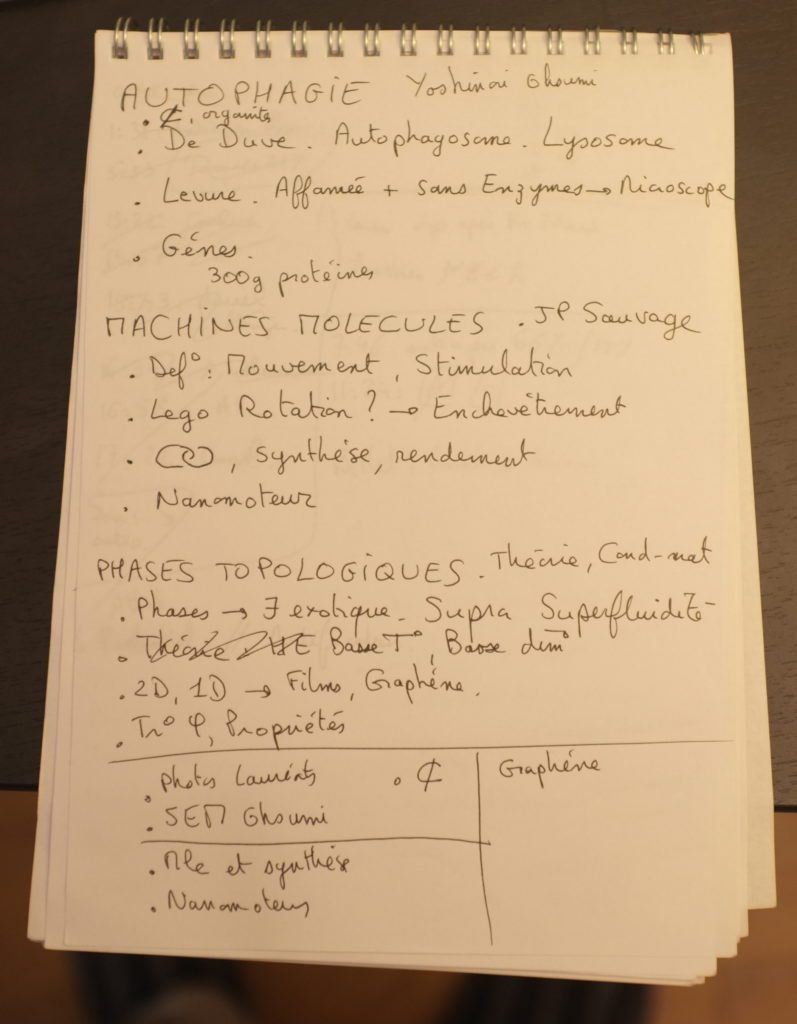 AUTOPHAGIE Yoshinori Ghoumi
. ₵, organites
. De Duve. Autophagosome. Lysosome
. Levure. Affamée + sans Enzymes → Microscope
. Gènes.
300g protéines
MACHINES MOLECULES . JP Sauvage
. Def°: Mouvement, Stimulation
. Lego Rotation ? → Enchevêtrement
. , synthèse, rendement
. Nanomoteur
PHASES TOPOLOGIQUES. Théorie, Cond-mat
. Phases → ∃ exotique. Supra Superfluidité
. Théorie Basse T°, Basse dim°
. 2D, 1D → Films, Graphène.
. Tr° φ, Propriétés
. Photos Lauréats . ₵
Graphène
. SEM Ghoumi
. Mle et synthèse
. Nanomoteurs